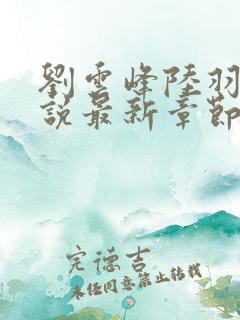 劉雲峰陸羽
說最新章節
完德吉
未经同意禁止转载